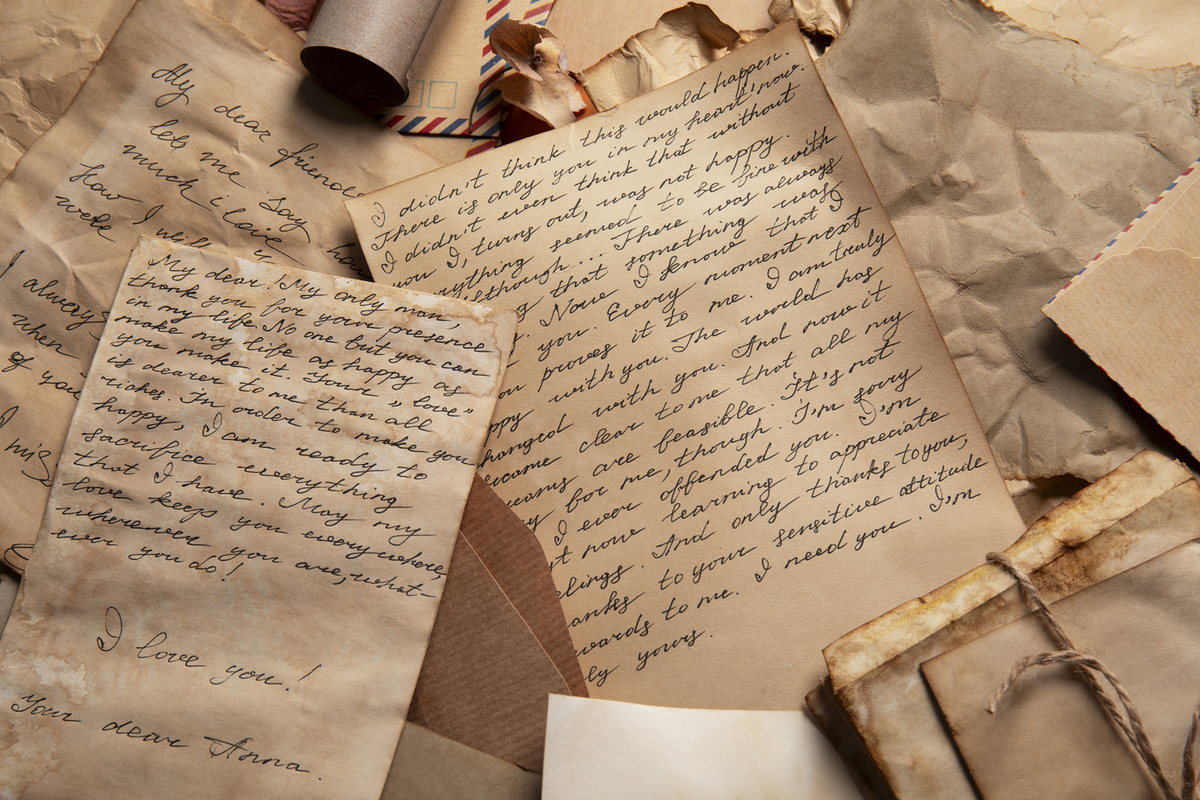 My dear friend
let me say
much i love
how I will
well
I always
when
of you
I mis
My dear! My only man,
thank you for your presence
in my life. No one but you can
make my life as happy as
you make it. Your "love"
is dearer to me than all
riches. In order to make you
happy, I am ready to
sacrifice everything
that I have. May my
love keep you everywhere,
wherever you are, what-
ever you do!
I love you!
Your dear Anna.
I didn't think this would happen.
There is only you in my heart, now.
I didn't even think that without
you I, turns out, was not happy.
erything seemed to be fine with
although... There was always
g that something was
Now I know that I
you. Every moment next
ou proves it to me. I am truly
ppy with you. The world has
hanged with you. And now it
ecame clear to me that all my
reams are feasible. It's not
y for me, though. I'm sorry
I ever offended you. I'm
t now learning to appreciate
elings. And only thanks to you,
anks to your sensitive attitude
wards to me. I need you. I'm
ly yours.